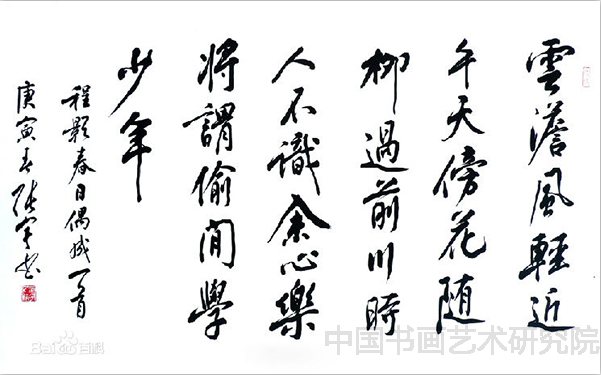 雲澹風輕近
午天傍花随
柳過前川時
人不識余心樂
將謂偷閒學
少年
程颢春日偶成一首
庚寅春
Bai du 百科
中国书画艺术研究院